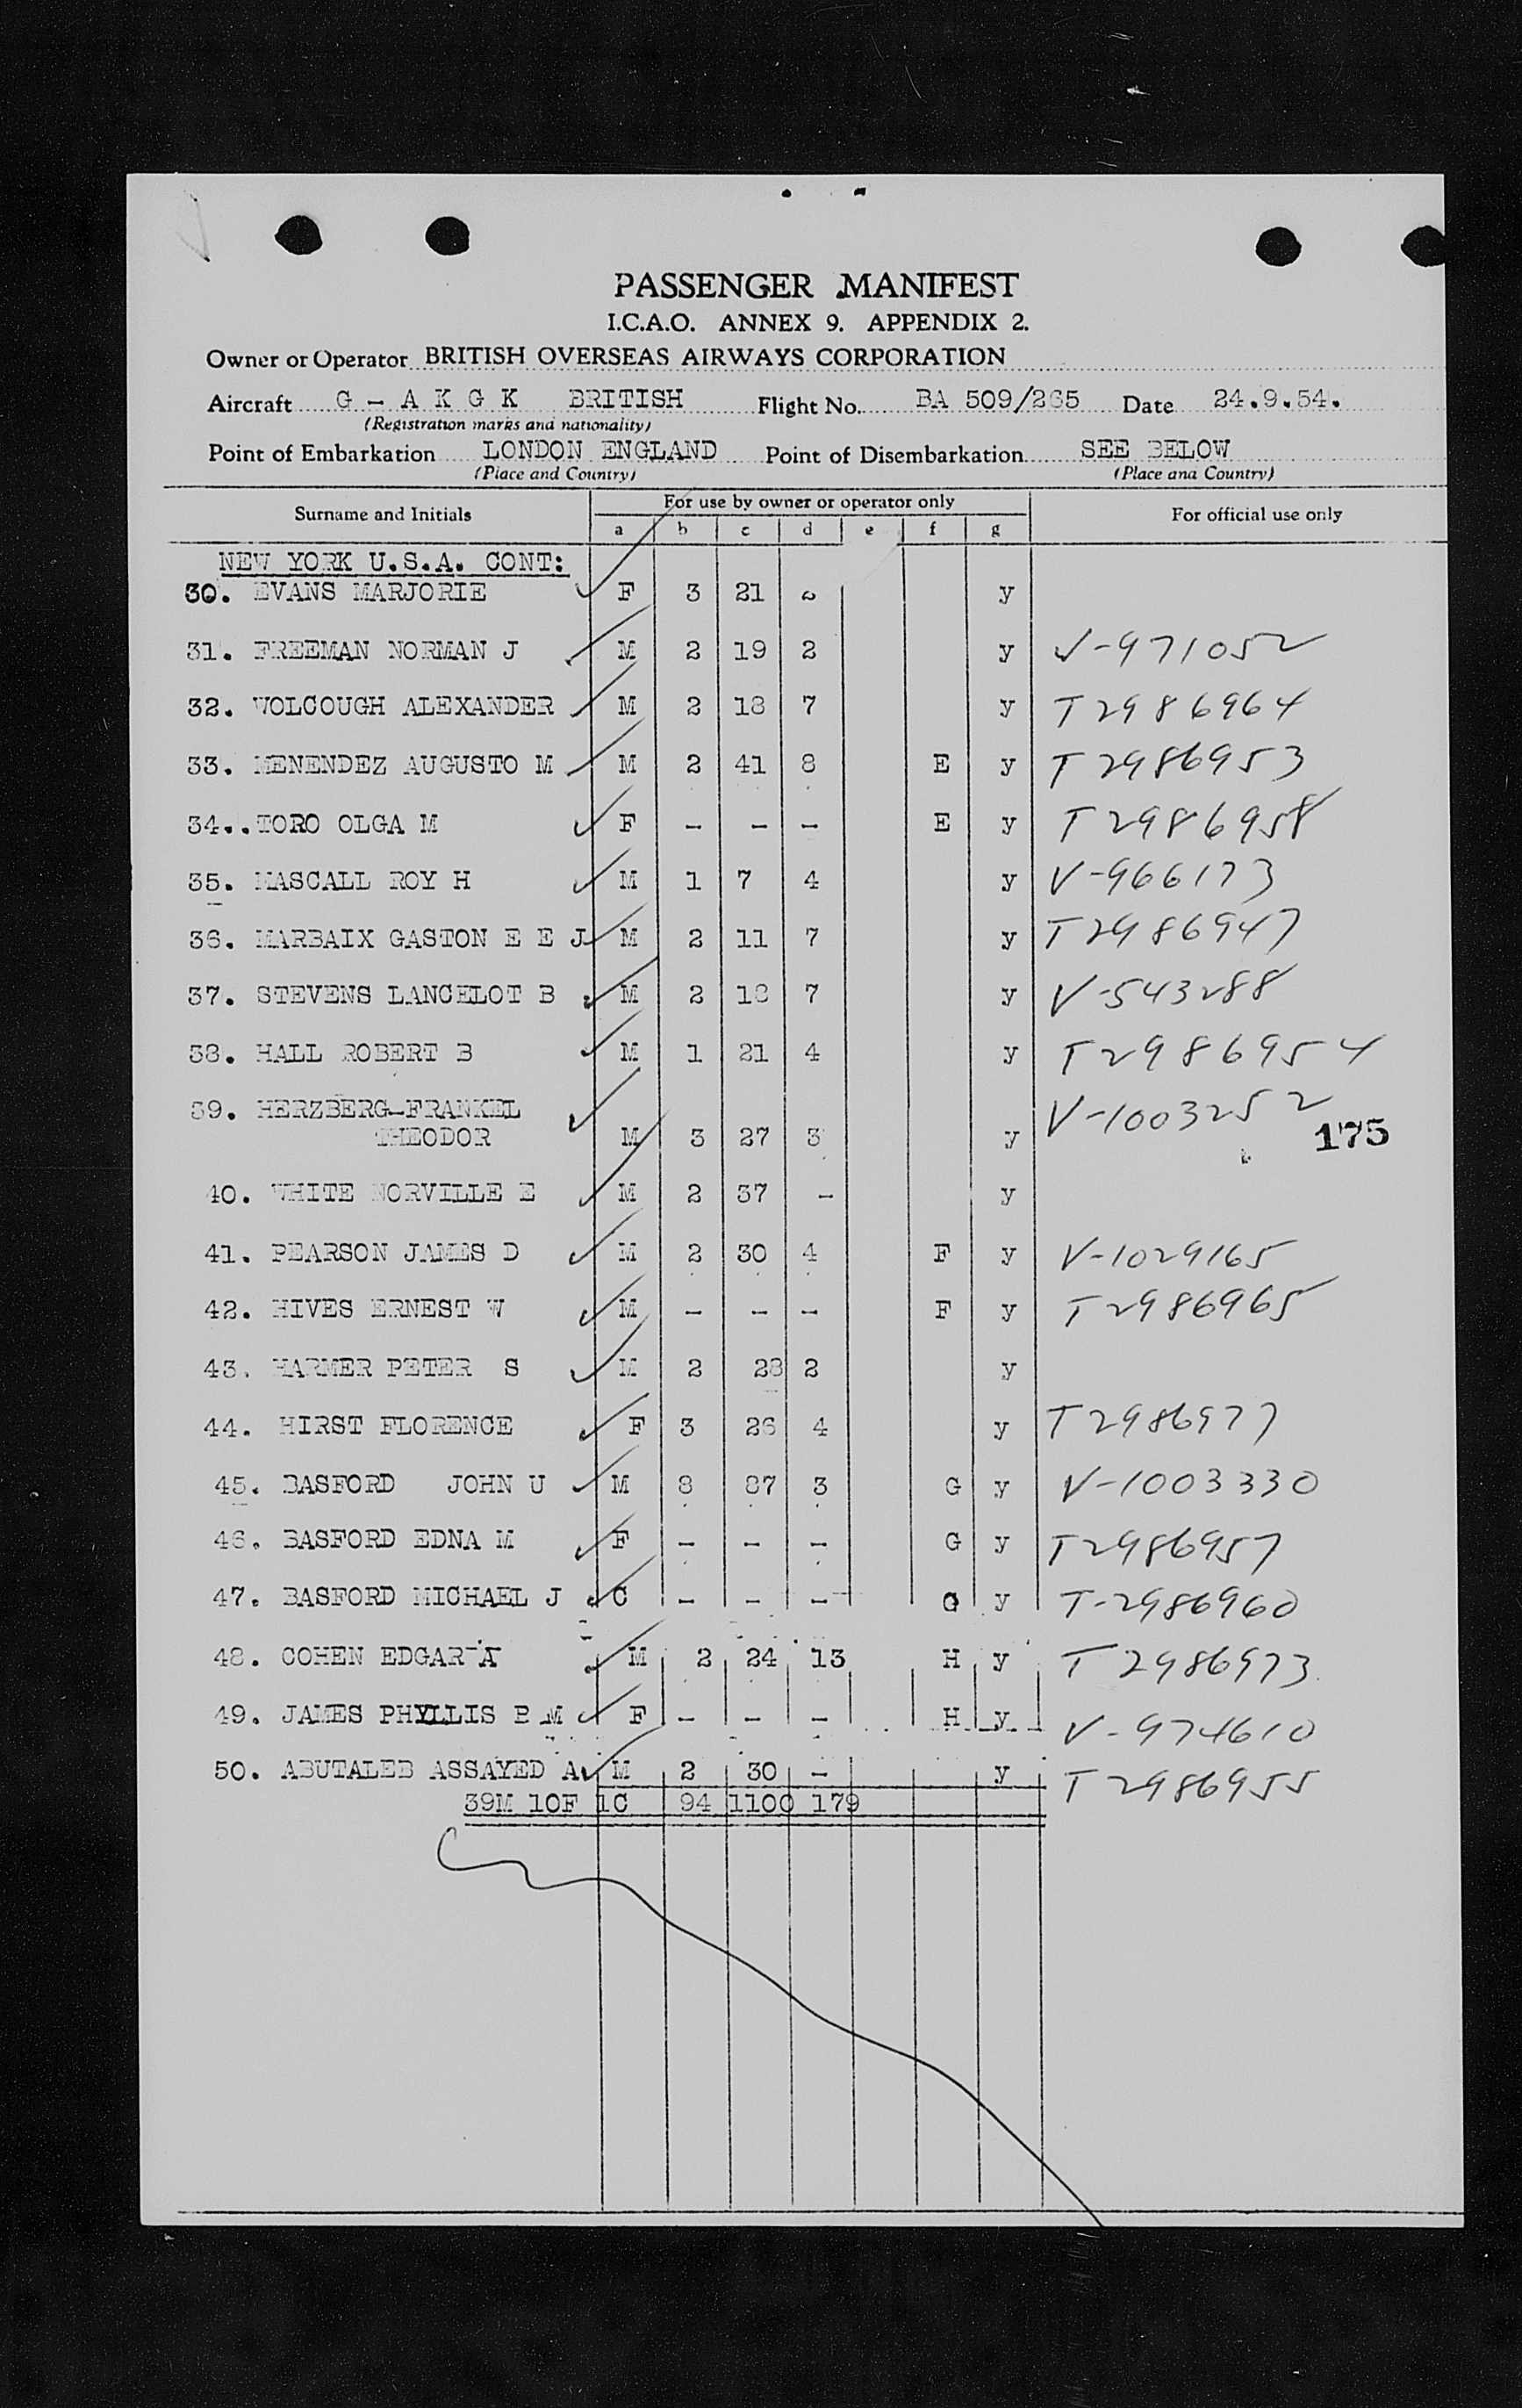 PASSENGER MANIFEST
I.C.A.O. ANNEX 9. APPENDIX 2.
Owner or Operator BRITISH OVERSEAS AIRWAYS CORPORATION
Aircraft G - A K G K BRITISH Flight No. BA 509/265 Date 24.9.54.
(Registration marks and nationality)
Point of Embarkation LONDON ENGLAND Point of Disembarkation SEE BELOW
(Place and Country) (Place and Country)
Surname and Initials For use by owner or operator only For official use only
a b c d e f g
NEW YORK U.S.A. CONT:
30. EVANS MARJORIE F 3 21 y
31. FREEMAN NORMAN J M 2 19 2 y V-971052
32. WOLCOUGH ALEXANDER M 2 18 7 y T2986964
33. MENENDEZ AUGUSTO M M 2 41 8 E y T2986953
34.. TORO OLGA M F - - - E y T2986958
35. MASCALL ROY H M 1 7 4 y V-966173
36. MARBAIX GASTON E E J M 2 11 7 y T2986947
37. STEVENS LANCELOT B M 2 18 7 y V-543288
38. HALL ROBERT B M 1 21 4 y T2986954
39. HERZBERG-FRANKEL V-1003252
THEODOR M 3 27 3 y 175
40. WHITE NORVILLE E M 2 37 - y
41. PEARSON JAMES D M 2 30 4 F y V-1029165
42. HIVES ERNEST W M - - - F y T2986965
43. HARMER PETER S M 2 28 2 y
44. HIRST FLORENCE F 3 26 4 y T2986977
45. BASFORD JOHN U M 8 87 3 G y V-1003330
46. BASFORD EDNA M F - - - G y T2986957
47. BASFORD MICHAEL J C - - - G y T-2986960
48. COHEN EDGAR A M 2 24 13 H y T2986973
49. JAMES PHYLLIS B M F - - - H y V-974610
50. ABUTALEB ASSAYED A M 2 30 - y T2986955
39M 10F 1C 94 1100 179